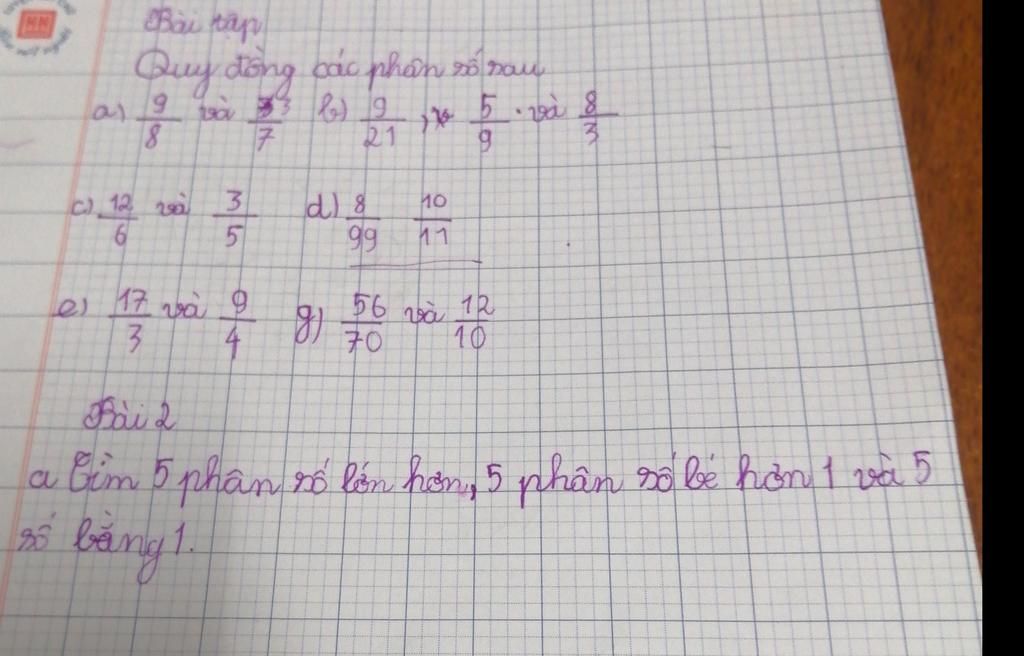 Bài tập
Quy đồng các phân số sau
a) 9/8 và 3/7 b) 9/21, 5/9 và 8/3
c) 12/6 và 3/5 d) 8/99 10/11
e) 17/3 và 9/4 g) 56/70 và 12/10
Bài 2
a Tìm 5 phân số lớn hơn, 5 phân số bé hơn 1 và 5
số bằng 1.